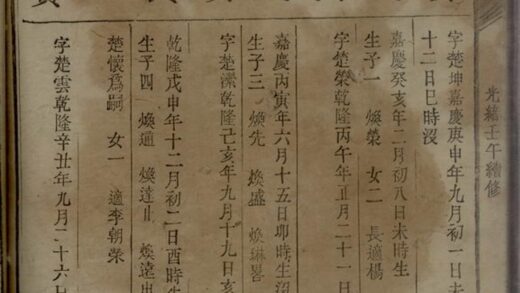 光緒壬午續修
字楚坤嘉慶庚申年九月初一日未
十二日巳時沒
嘉慶癸亥年二月初八日未時生
生子一 煥榮 女二 長適楊
字楚榮乾隆丙午年正月二十一日
嘉慶丙寅年六月十五日卯時生沼
生子三 煥先 煥盛 煥琳畧
字楚潔乾隆己亥年九月十九日亥
乾隆戊申年十二月初二日酉時生
生子四 煥通 煥達止 煥遠
楚懷爲嗣 女一 適李朝榮
字楚雲乾隆辛丑年九月二十六日